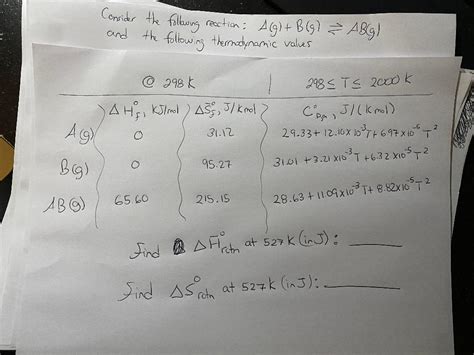 Consider the following reaction: A(g) + B(g) ⇌ AB(g)
and the following thermodynamic values
@ 298 K | 298 ≤ T ≤ 2000 K
ΔH°f, KJ/mol ΔS°f, J/kmol) C°p,m, J/(Kmol)
A(g) 0 31.12 29.33 + 12.10×10⁻³T + 6.97×10⁻⁵T²
B(g) 0 95.27 31.01 + 3.21×10⁻³T + 6.32×10⁻⁵T²
AB(g) 65.60 215.15 28.63 + 11.09×10⁻³T + 8.82×10⁻⁵T²
Find ΔH°rctn at 527 K (in J):
Find ΔS°rctn at 527 K (in J):